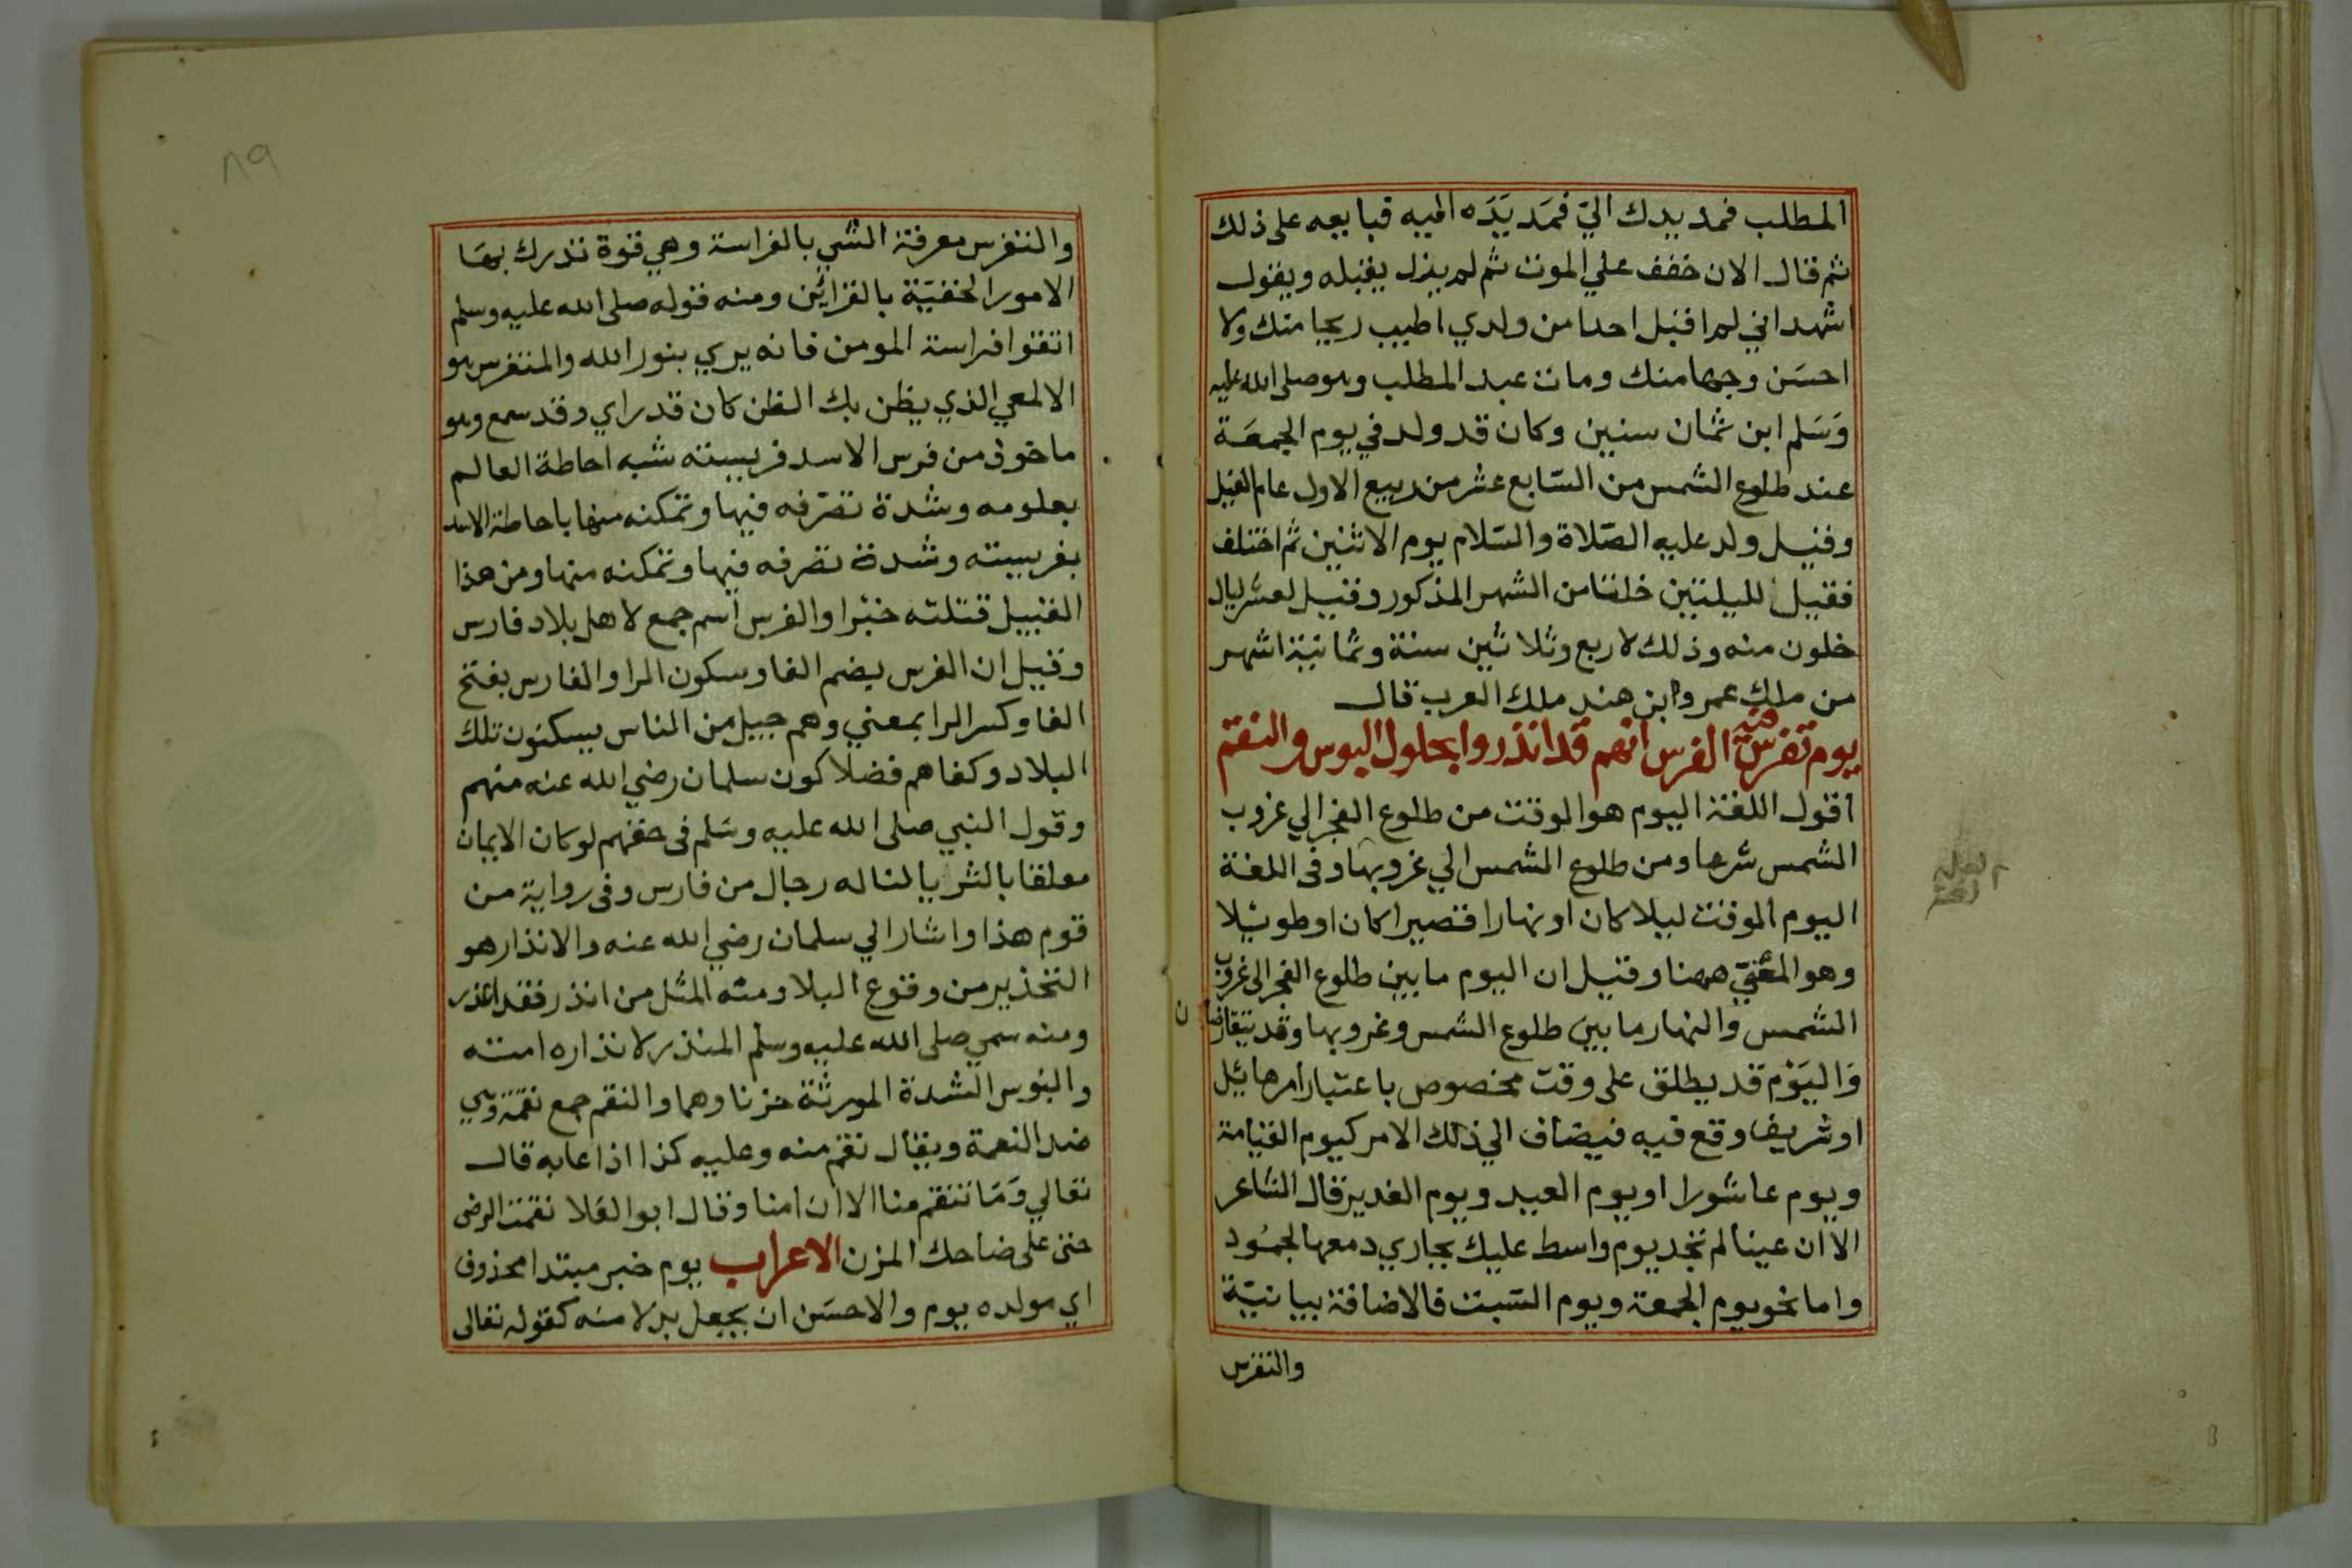 المطلب فمد يدك الي فمَد يَدَه اليه فبايعه على ذلك
ثم قال الان خفف علي الموت ثم لم يزل يقبله ويقول
اشهد اني لم اقبل احدا من ولدي اطيب ريحا منك ولا
احسَن وجها منك ومات عبد المطلب وهو صلى الله عليه
وَسَلم ابن ثمان سنين وكان قد ولد في يوم الجمعَة
عند طلوع الشمس من السّابع عشر من ربيع الاول عام الفيل
وقيل ولد عليه الصّلاة والسّلام يوم الاثنين ثم اختلف
فقيل لليلتين خلتا من الشهر المذكور وقيل لعشر ليال
خلون منه وذلك لاربع وثلاثين سنة وثمانية اشهر
من ملك عمرو ابن هند ملك العرب قال
يوم تفرس فيه الفرس انهم قد انذروا بحلول البوس والنقم
اقول اللغة اليوم هو الوقت من طلوع الفجر الي غروب
الشمس شرعا ومن طلوع الشمس الي غروبها وفى اللغة
اليوم الوقت ليلا كان او نهارا قصيرا كان او طويلا
وهو المعْنيّ ههنا وقيل ان اليوم ما بين طلوع الفجر الى غروب
الشمس والنهار ما بين طلوع الشمس وغروبها وقد يتقارضان
وَاليَوْم قد يطلق على وقت مخصوص باعتبار امر هائل
او شريف وقع فيه فيضاف الي ذلك الامر كيوم القيامة
ويوم عاشورا او يوم العيد ويوم الغدير قال الشاعر
الا ان عينا لم تجد يوم واسط عليك بجاري دمعها لجمُود
واما نحو يوم الجمعة ويوم السّبت فالاضافة بيانيّة
والتفرس
٨٩
والتفرس معرفة الشي بالفراسة وهي قوة تدرك بهَا
الامور الخفيّة بالقرائن ومنه قوله صلى الله عليه وسلم
اتقوا فراسة المومن فانه يري بنور الله والمتفرس هو
الالمعي الذي يظن بك الظن كان قد راي وقد سمع وهو
ماخوذ من فرس الاسد فريسته شبه احاطة العالم
بعلومه وشدة تصرّفه فيها وتمكنه منها باحاطة الاسد
بفريسته وشدة تصرفه فيها وتمكنه منها ومن هذا
القبيل قتلته خبرا والفرس اسم جمع لاهل بلاد فارس
وقيل ان الفرس بضم الفا وسكون الرا والفارس بفتح
الفا وكسر الرا بمعني وهم جيل من الناس يسكنون تلك
البلاد وكفاهم فضلا كون سلمان رضي الله عنه منهم
وقول النبي صلى الله عليه وسَلم فى حقهم لو كان الايمان
معلقا بالثريا لناله رجال من فارس وفى رواية من
قوم هذا واشار الي سلمان رضي الله عنه والانذار هو
التحذير من وقوع البلا ومنه المثل من انذر فقد اعذر
ومنه سمي صلى الله عليه وسلم المنذر لانذاره امته
والبوس الشدة المورثة حزنا وهما والنقم جمع نقمة وهي
ضد النعمة ويقال نقم منه وعليه كذا اذا عابه قال
تعالي وَمَا تنقم منا الا ان امنا وقال ابو العَلا نقمت الرضى
حتى على ضاحك المزن الاعراب يوم خبر مبتدا محذوف
اي مولده يوم والاحسَن ان يجعل بدلا منه كقوله تعالى